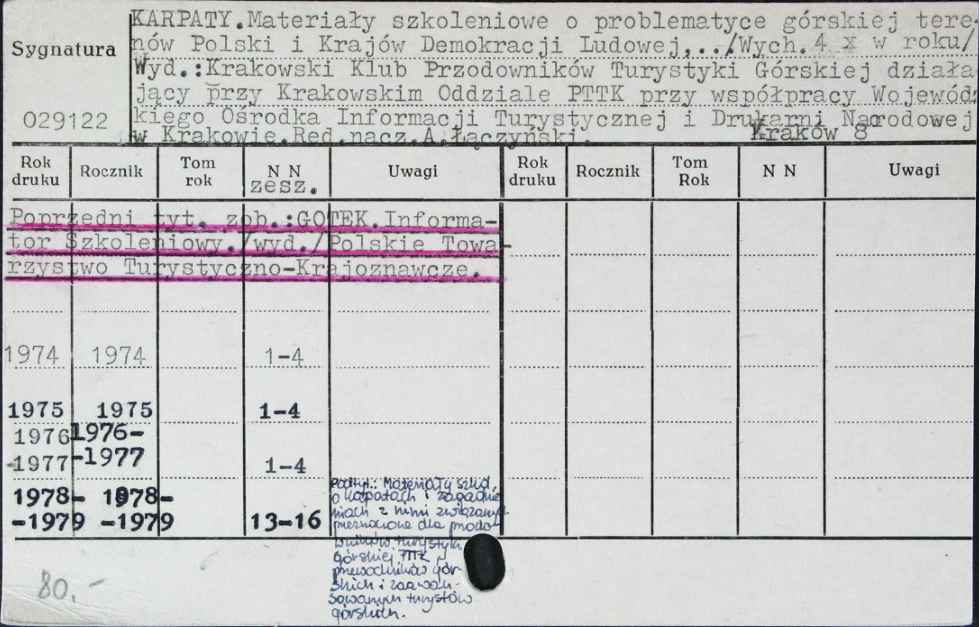 KARPATY.Materiały szkoleniowe o problematyce górskiej tere-
Sygnatura
nów Polski i Krajów Demokracji Ludowej,../Wych.4 x w roku/
Wyd.:Krakowski Klub Przodowników Turystyki Górskiej działa
jący przy Krakowskim Oddziale PTTK przy współpracy Wojewódz
029122
kiego Ośrodka Informacji Turystycznej i Drukarni Narodowej
w Krakowie.Red.nacz.A.Łączyński. Kraków 8°
Rok druku Rocznik Tom rok N N zesz. Uwagi Rok druku Rocznik Tom Rok N N Uwagi
Poprzedni tyt. zob.:GOTEK.Informa-
tor Szkoleniowy./wyd./Polskie Towa-
rzystwo Turystyczno-Krajoznawcze.
1974 1974 1-4
1975 1975 1-4
1976 1976-
-1977 -1977 1-4
1978- 1978-
-1979 -1979 13-16
Podtyt.: Materiały szkol.
o Karpatach i zagadnie
niach z nimi związanych
przeznaczone dla przodo
wników turystyki
górskiej PTTK,
przewodników gór-
skich i zaawan-
sowanych turystów
górskich.
80.-